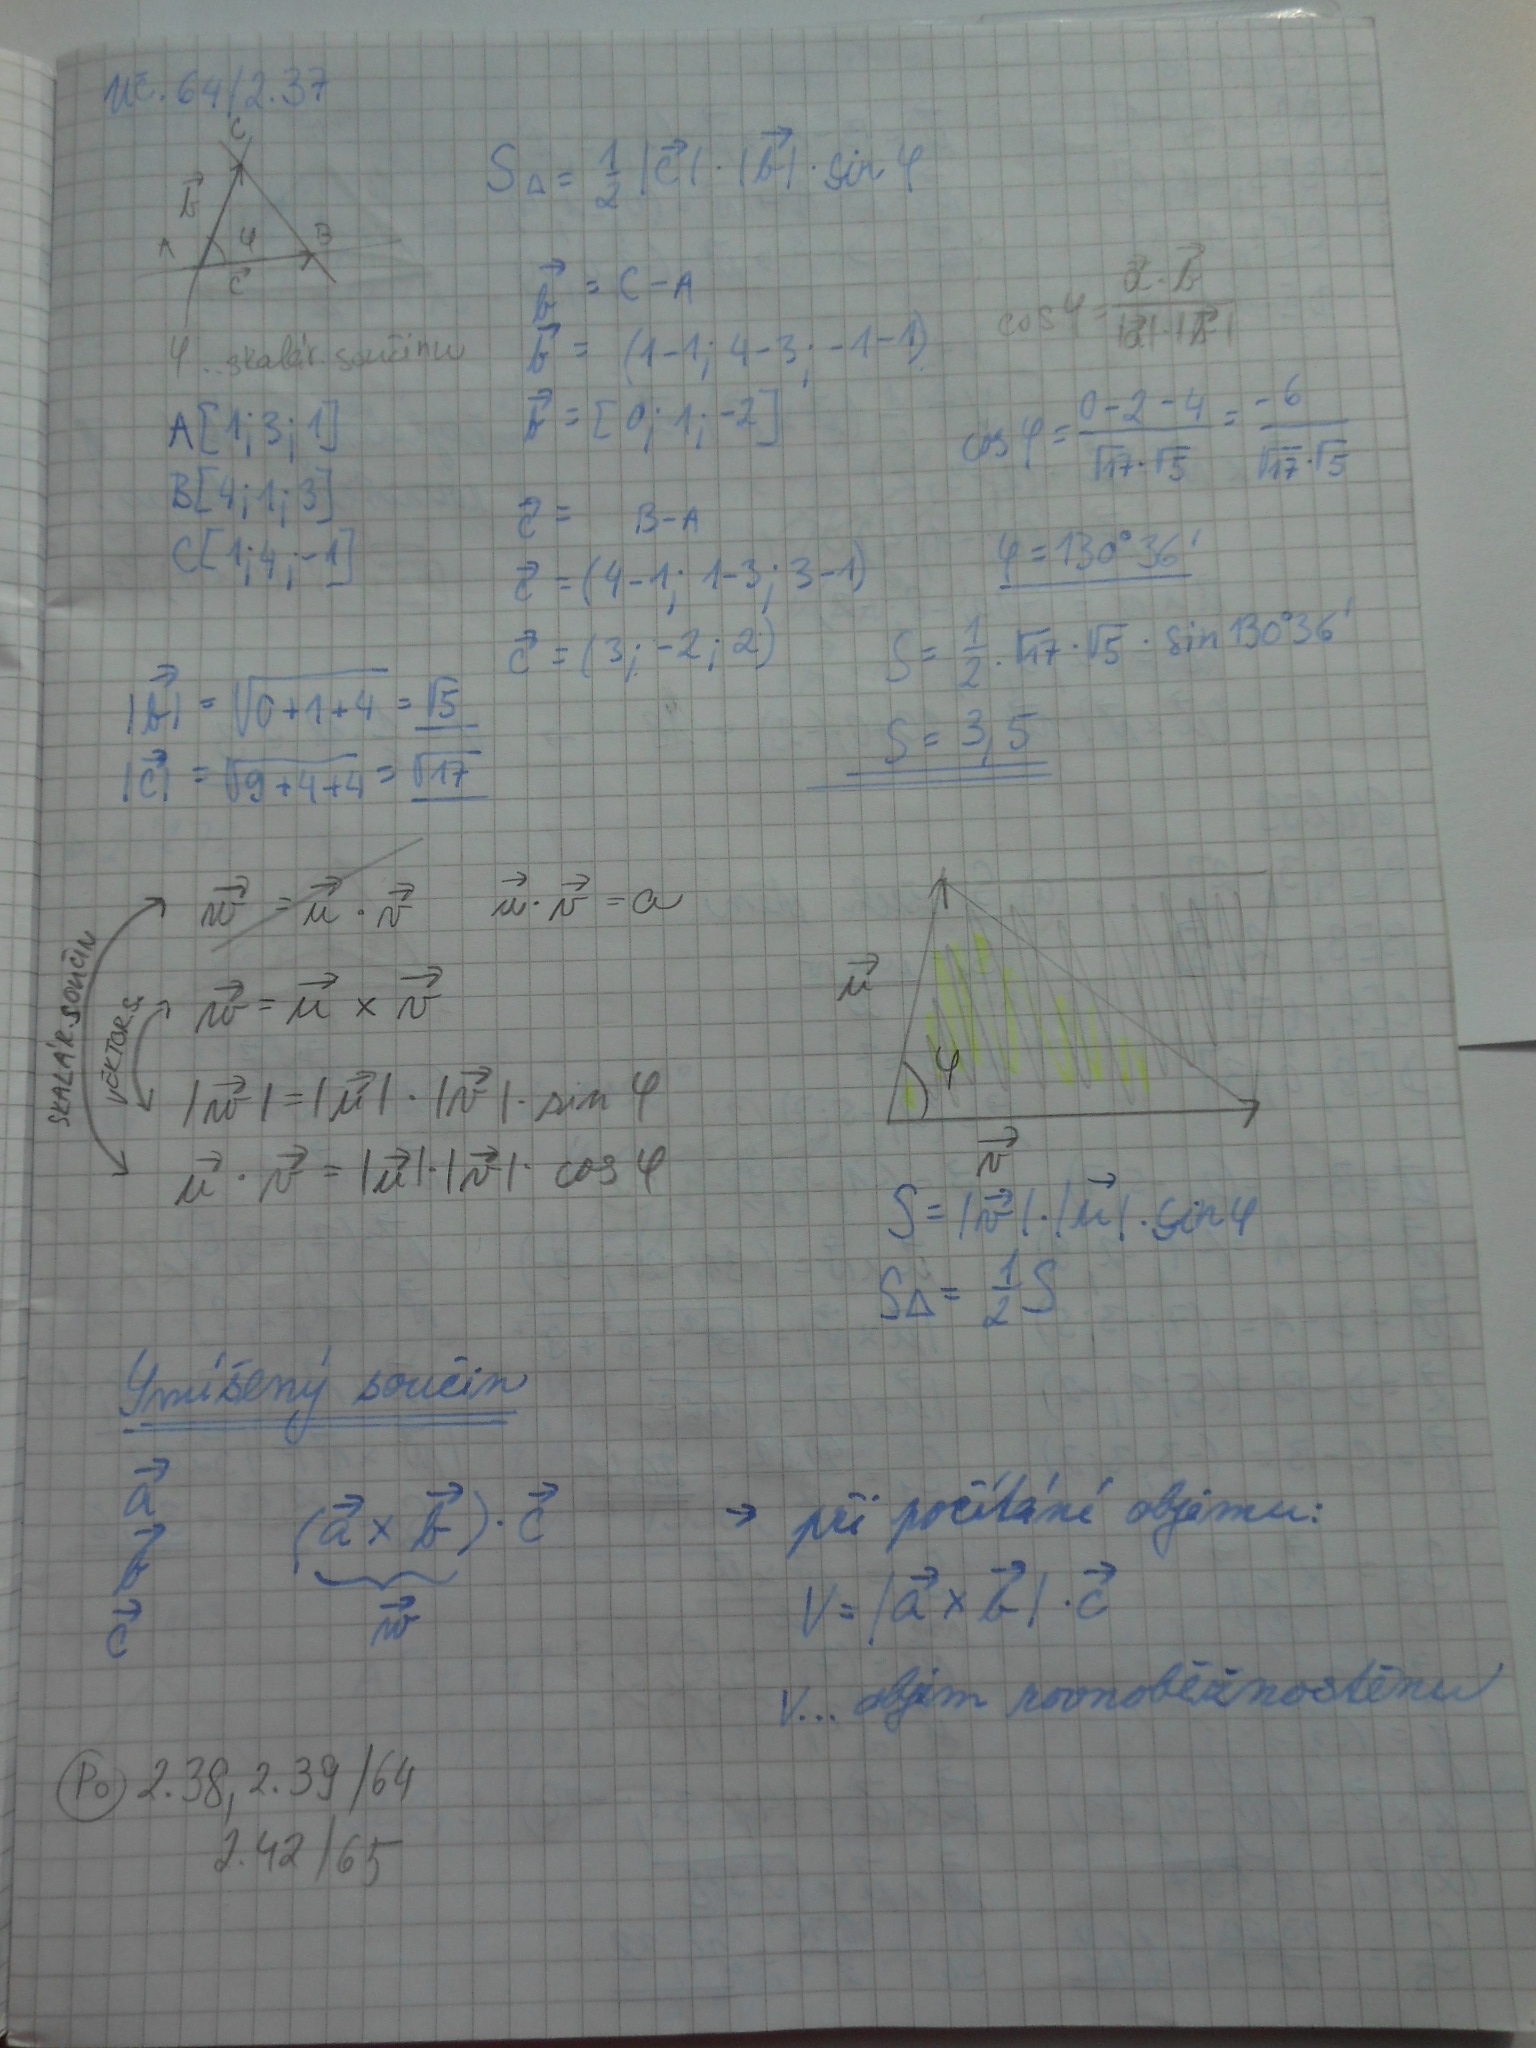 uč. 64/2.37
C
b⃗
A φ B
c⃗
φ...skalár. součinu
A[1;3;1]
B[4;1;3]
C[1;4;-1]
|b⃗| = √0+1+4 = √5
|c⃗| = √9+4+4 = √17
S△ = 1/2 |c⃗| · |b⃗| · sin φ
b⃗ = C-A
b⃗ = (1-1; 4-3; -1-1)
b⃗ = [0; 1; -2]
c⃗ = B-A
c⃗ = (4-1; 1-3; 3-1)
c⃗ = (3; -2; 2)
cos φ = a⃗·b⃗ / |a⃗|·|b⃗|
cos φ = 0-2-4 / √17·√5 = -6 / √17·√5
φ = 130°36'
S = 1/2 · √17 · √5 · sin 130°36'
S = 3,5
SKALÁR. SOUČIN
VEKTOR. S.
w⃗ = u⃗ · v⃗ u⃗ · v⃗ = a
w⃗ = u⃗ × v⃗
|w⃗| = |u⃗| · |v⃗| · sin φ
u⃗ · v⃗ = |u⃗| · |v⃗| · cos φ
u⃗
φ
v⃗
S = |v⃗| · |u⃗| · sin φ
S△ = 1/2 S
Smíšený součin
a⃗
b⃗
c⃗
(a⃗ × b⃗) · c⃗
w⃗
→ při počítání objemu:
V = |a⃗ × b⃗| · c⃗
V... objem rovnoběžnostěnu
Po 2.38, 2.39/64
2.42/65